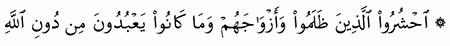 ۞ ٱحْشُرُوا۟ ٱلَّذِينَ ظَلَمُوا۟ وَأَزْوَٰجَهُمْ وَمَا كَانُوا۟ يَعْبُدُونَ مِن دُونِ ٱللَّهِ